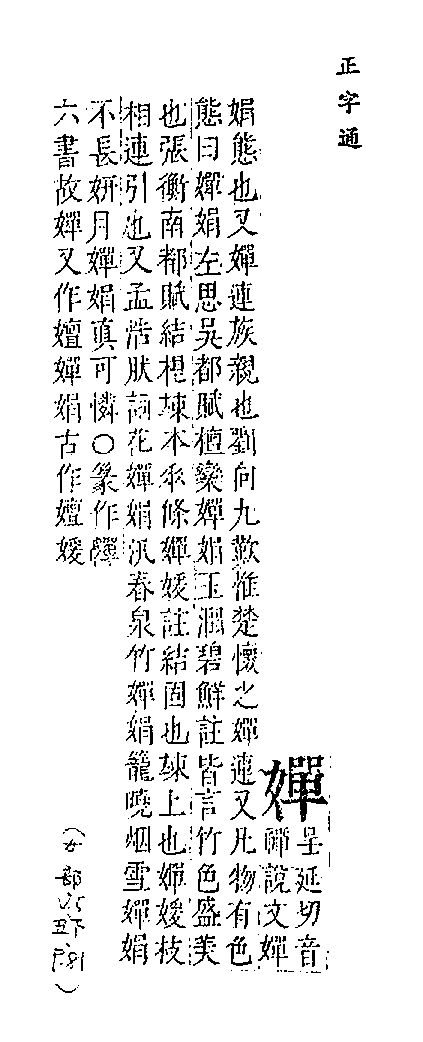 正字通
嬋
呈延切音
禪說文嬋
娟態也又嬋連族親也劉向九歎惟楚懷之嬋連又凡物有色
態曰嬋娟左思吳都賦檀欒嬋娟玉潤碧鮮註皆言竹色盛美
也張衡南都賦結根竦本垂條嬋媛註結固也竦上也嬋媛枝
相連引也又孟浩肰詞花嬋娟汎春泉竹嬋娟籠曉烟雪嬋娟
不長妍月嬋娟眞可憐○篆作嬋
六書故嬋又作嬗嬋娟古作嬗媛
(女部